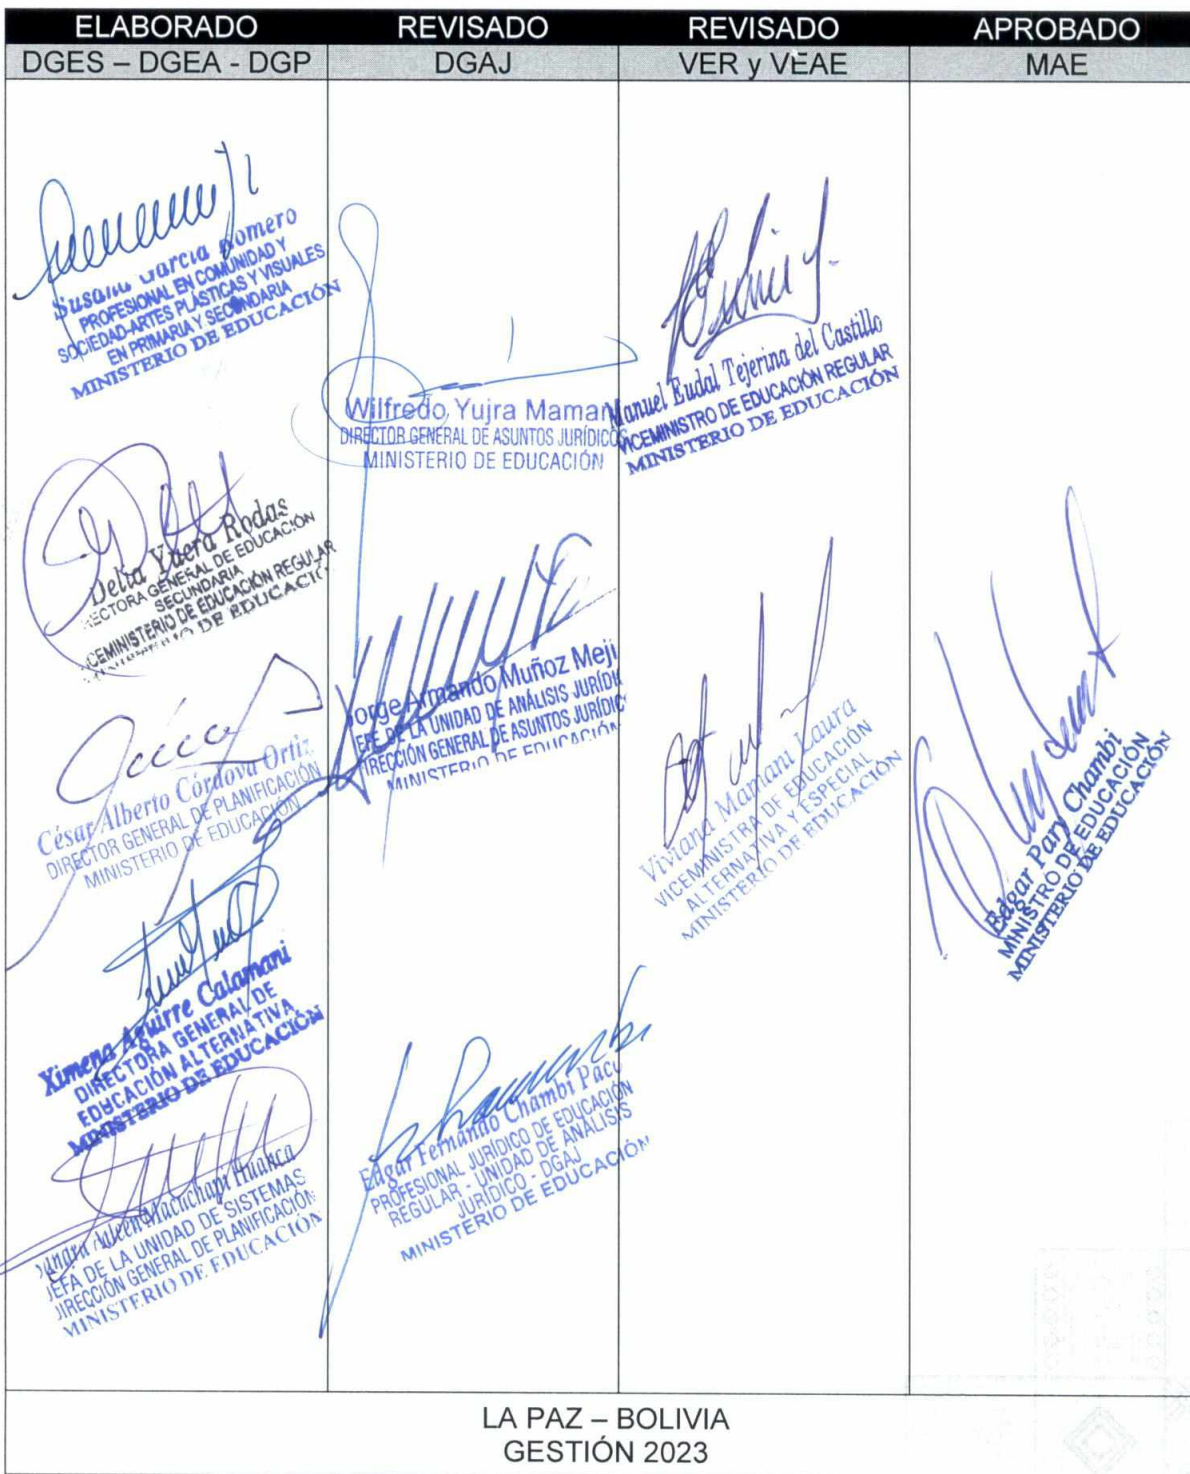 ELABORADO
REVISADO
REVISADO
APROBADO
DGES – DGEA - DGP
DGAJ
VER y VEAE
MAE
Susana García Romero
PROFESIONAL EN COMUNIDAD Y
SOCIEDAD-ARTES PLÁSTICAS Y VISUALES
EN PRIMARIA Y SECUNDARIA
MINISTERIO DE EDUCACIÓN
Delia Yucra Rodas
ECTORA GENERAL DE EDUCACIÓN
SECUNDARIA
CEMINISTERIO DE EDUCACIÓN REGULAR
DE EDUCACI
César Alberto Córdova Ortiz
DIRECTOR GENERAL DE PLANIFICACIÓN
MINISTERIO DE EDUCACIÓN
Ximena Aguirre Calamani
DIRECTORA GENERAL DE
EDUCACIÓN ALTERNATIVA
MINISTERIO DE EDUCACIÓN
Macuchapi Huanca
JEFA DE LA UNIDAD DE SISTEMAS
DIRECCIÓN GENERAL DE PLANIFICACIÓN
MINISTERIO DE EDUCACIÓN
Wilfredo Yujra Maman
DIRECTOR GENERAL DE ASUNTOS JURÍDICOS
MINISTERIO DE EDUCACIÓN
Jorge Armando Muñoz Meji
EFE DE LA UNIDAD DE ANÁLISIS JURÍDI
IRECCIÓN GENERAL DE ASUNTOS JURÍDIC
MINISTERIO DE EDUCACIÓN
Edgar Fernando Chambi Paco
PROFESIONAL JURÍDICO DE EDUCACIÓN
REGULAR - UNIDAD DE ANÁLISIS
JURÍDICO - DGAJ
MINISTERIO DE EDUCACIÓN
Manuel Eudal Tejerina del Castillo
VICEMINISTRO DE EDUCACIÓN REGULAR
MINISTERIO DE EDUCACIÓN
Viviana Mamani Laura
VICEMINISTRA DE EDUCACIÓN
ALTERNATIVA Y ESPECIAL
MINISTERIO DE EDUCACIÓN
Edgar Pary Chambi
MINISTRO DE EDUCACIÓN
MINISTERIO DE EDUCACIÓN
LA PAZ – BOLIVIA
GESTIÓN 2023